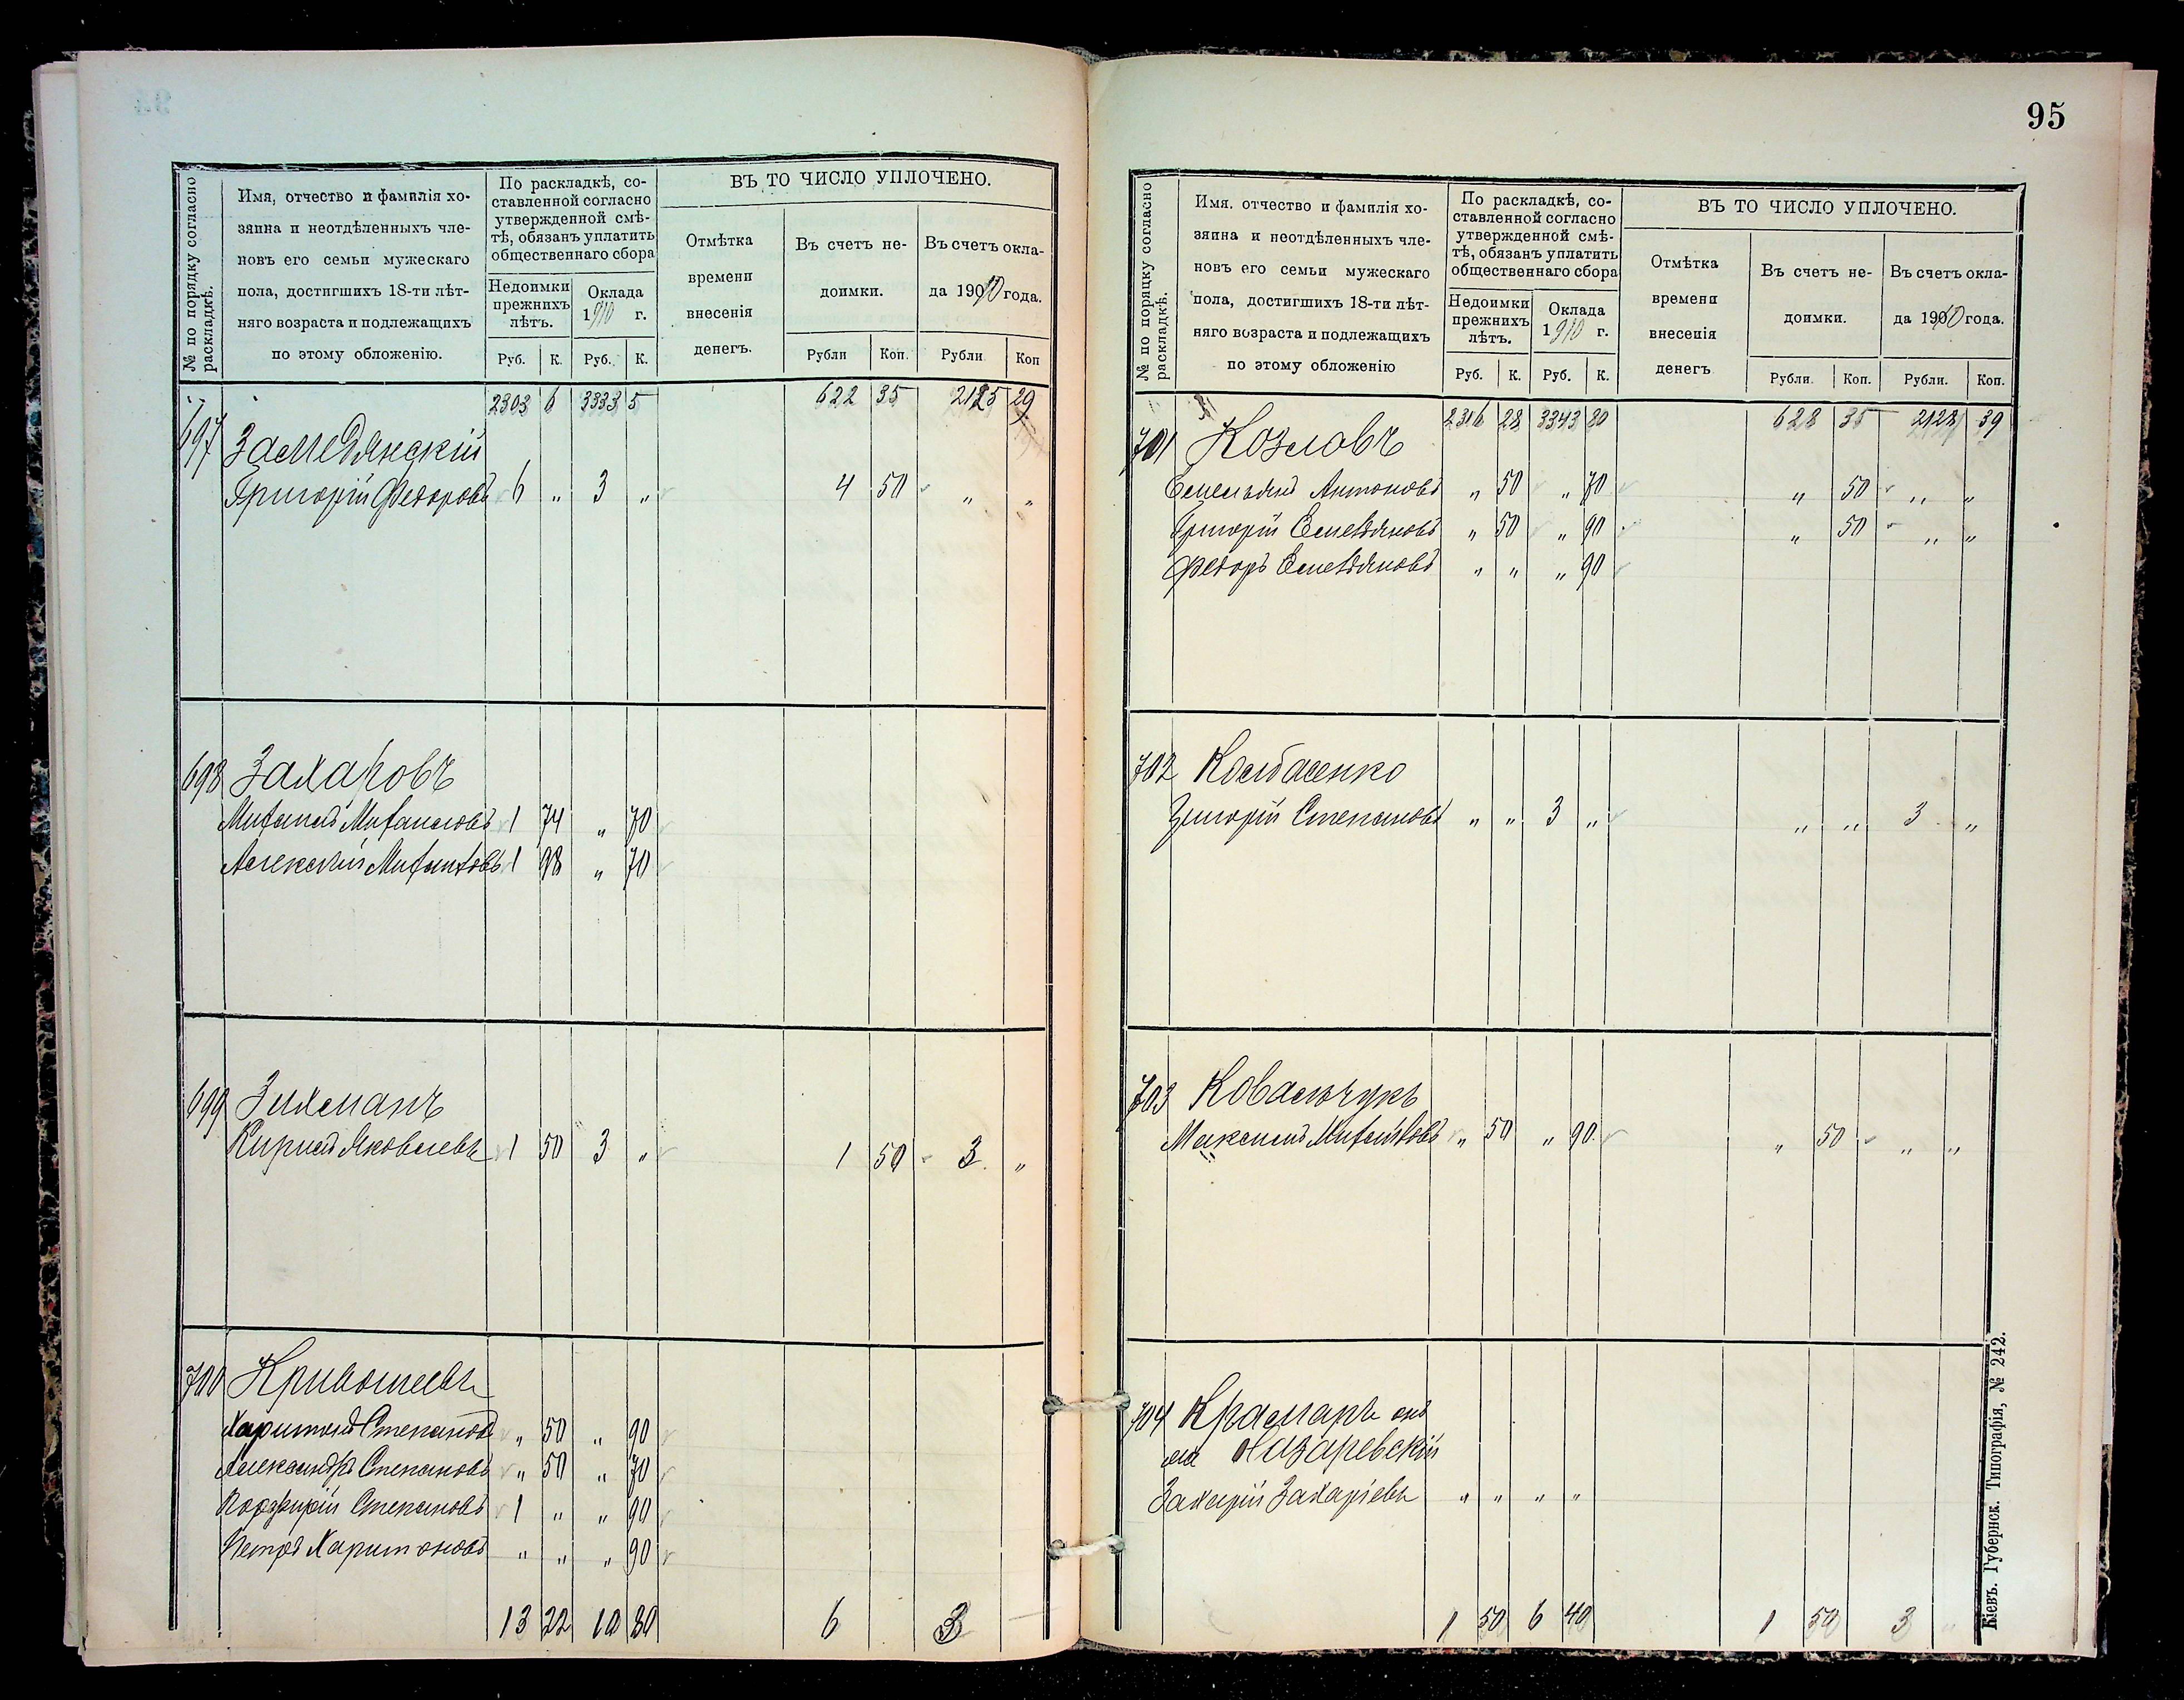 № по порядку согласно раскладкѣ.
Имя, отчество и фамилія хо-
зяина и неотдѣленныхъ чле-
новъ его семьи мужескаго
пола, достигшихъ 18-ти лѣт-
няго возраста и подлежащихъ
по этому обложенію.
По раскладкѣ, со-
ставленной согласно
утвержденной смѣ-
тѣ, обязанъ уплатить
общественнаго сбора
Недоимки
прежнихъ
лѣтъ.
Оклада
1910 г.
Руб. К. Руб. К.
ВЪ ТО ЧИСЛО УПЛОЧЕНО.
Отмѣтка
времени
внесенія
денегъ.
Въ счетъ не-
доимки.
Рубли Коп.
Въ счетъ окла-
да 1910 года.
Рубли Коп
2303 6 3333 5 622 35 2125 29
697 Замедянскій
Григорій Федоровъ 6 " 3 " 4 50 " "
698 Захаровъ
Михаилъ Михаиловъ 1 74 " 70
Алексѣй Михайловъ 1 98 " 70
699 Зихманъ
Кирилъ Яковлевъ 1 50 3 " 1 50 3 "
700 Кривошеевъ
Харитонъ Степановъ " 50 " 90
Александръ Степановъ " 50 " 70
Порфирій Степановъ 1 " " 90
Петръ Харитоновъ " " " 90
13 22 10 80 6 3
95
№ по порядку согласно раскладкѣ.
Имя, отчество и фамилія хо-
зяина и неотдѣленныхъ чле-
новъ его семьи мужескаго
пола, достигшихъ 18-ти лѣт-
няго возраста и подлежащихъ
по этому обложенію
По раскладкѣ, со-
ставленной согласно
утвержденной смѣ-
тѣ, обязанъ уплатить
общественнаго сбора
Недоимки
прежнихъ
лѣтъ.
Оклада
1910 г.
Руб. К. Руб. К.
ВЪ ТО ЧИСЛО УПЛОЧЕНО.
Отмѣтка
времени
внесенія
денегъ
Въ счетъ не-
доимки.
Рубли. Коп.
Въ счетъ окла-
да 1910 года.
Рубли. Коп.
2316 28 3343 80 628 35 2128 39
701 Козловъ
Емельянъ Антоновъ " 50 " 70 " 50 " "
Григорій Емельяновъ " 50 " 90 " 50 " "
Федоръ Емельяновъ " " " 90
702 Колбасенко
Григорій Степановъ " " 3 " " " 3 "
703 Ковальчукъ
Максимъ Михайловъ " 50 " 90 " 50 " "
704 Крамаръ онъ
же Назаревскій
Захарій Захаріевъ " " " "
1 50 6 40 1 50 3
Кіевъ. Губернск. Типографія, № 242.